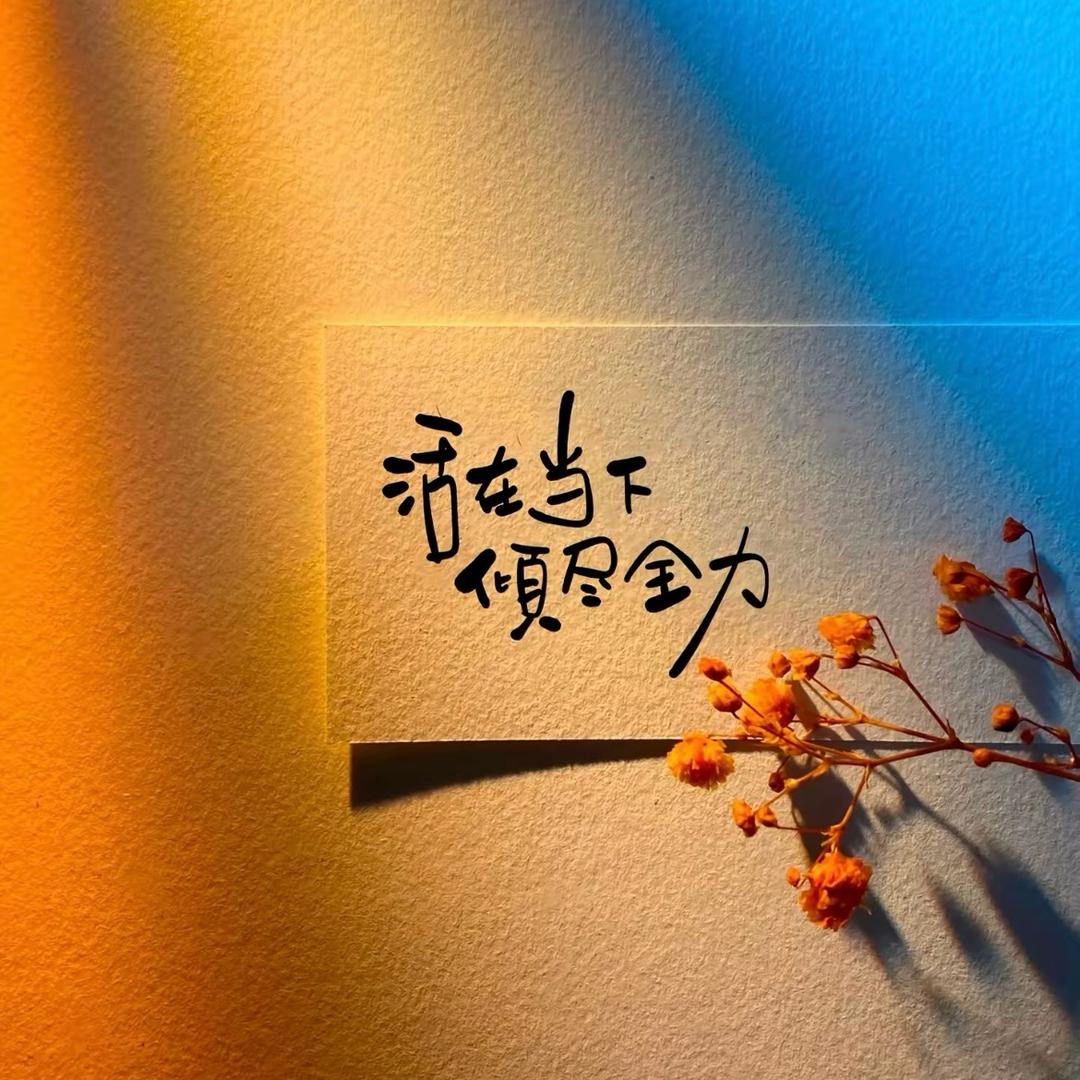 活在当下
傾尽全力